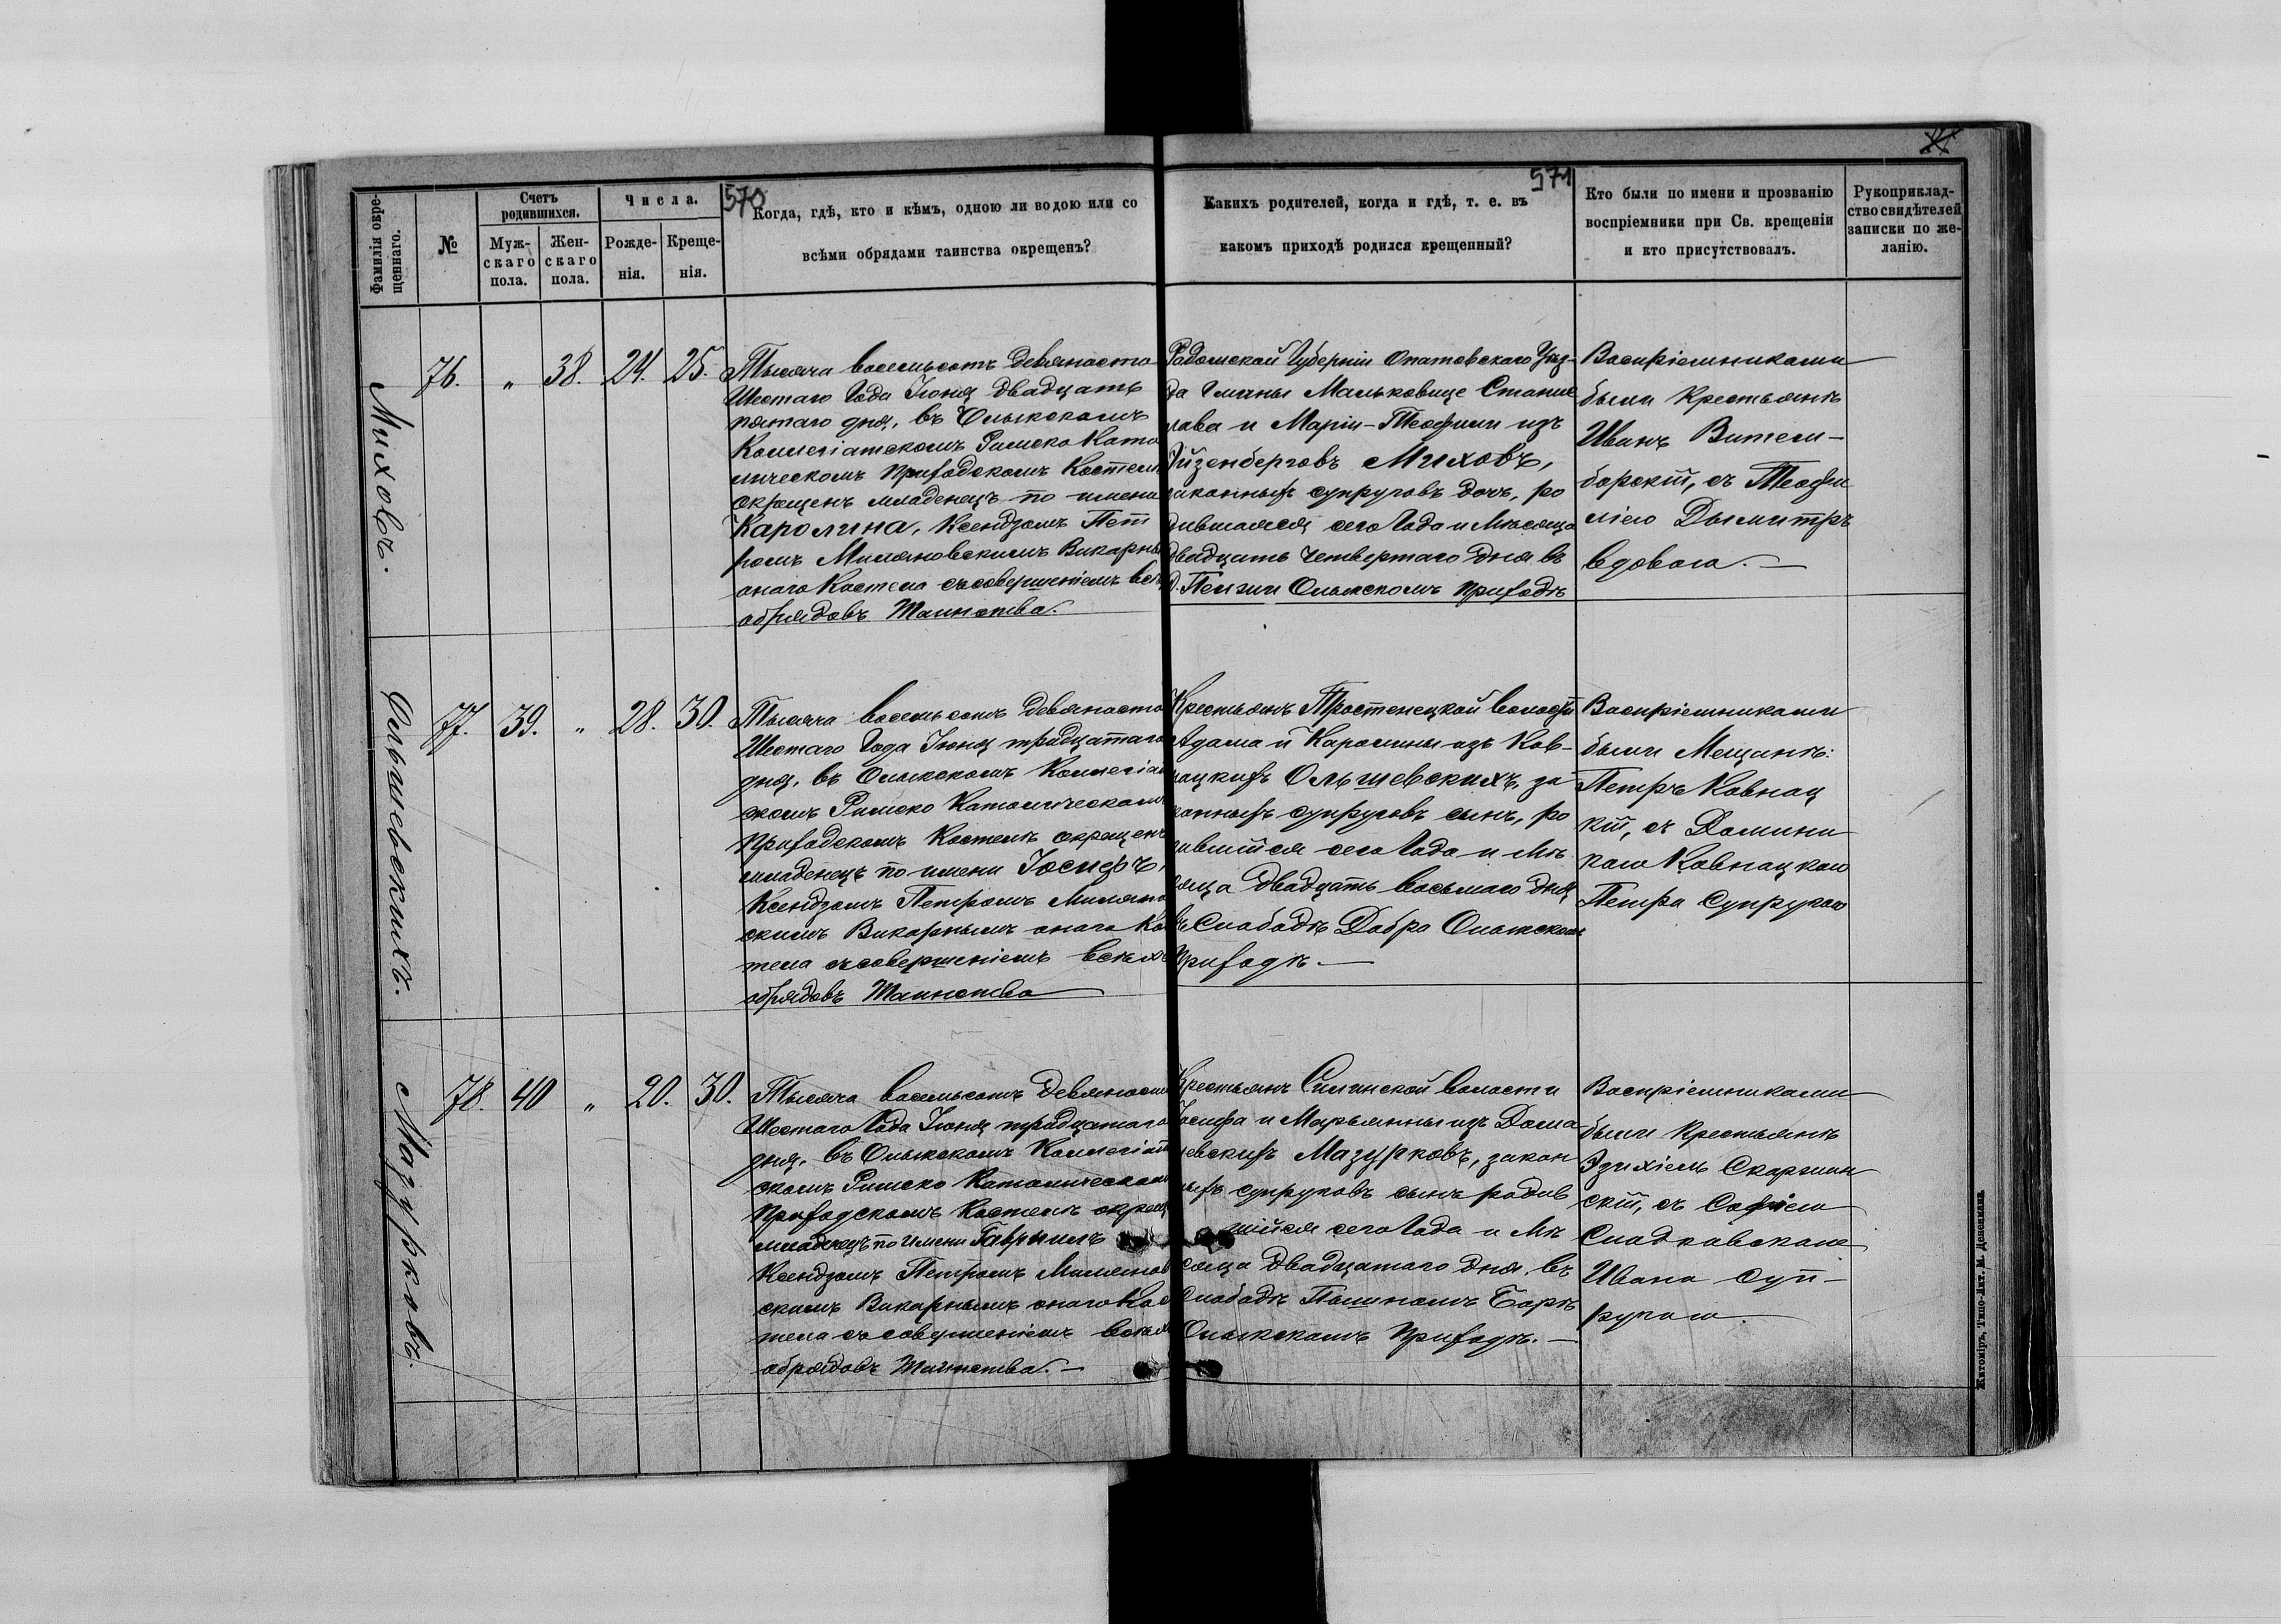 570
571
Фамилія окрещеннаго.
№
Счетъ родившихся.
Мужскаго пола.
Женскаго пола.
Числа.
Рожденія.
Крещенія.
Когда, гдѣ, кто и кѣмъ, одною ли водою или со
всѣми обрядами таинства окрещенъ?
Какихъ родителей, когда и гдѣ, т. е. въ
какомъ приходѣ родился крещенный?
Кто были по имени и прозванію
воспріемники при Св. крещеніи
и кто присутствовалъ.
Рукоприклад-
ство свидѣтелей
записки по же-
ланію.
Миховъ.
76. „ 38. 24. 25.
Тысяча восемьсотъ девяносто
Шестаго Года Іюня двадцать
пятаго дня, въ Олыкскомъ
Коллегіатскомъ Римско Като
лическомъ Приходскомъ Костелѣ
окрещенъ младенецъ по имени
Каролина, Ксендзомъ Пет
ромъ Милановскимъ Викарны
онаго Костела съ совершеніемъ всѣ
обрядовъ Таинства.
Радомской Губерніи Опатовскаго Уѣз-
да Гмины Мальковице Станис
лава и Маріи-Теофили изъ
Айзенберговъ Миховъ,
законныхъ супруговъ дочь, ро
дившаяся сего Года и Мѣсяца
двадцать четвертаго дня въ
д. Пелзии Олыкскомъ Приходѣ
Воспріемниками
были Крестьянѣ
Иванъ Вител-
борскій, съ Теофи
лією Дымитръ
вдовою.
Ольшевскихъ.
77. 39. „ 28. 30.
Тысяча восемьсотъ девяносто
Шестаго Года Іюня тридцатаго
дня, въ Олыкскомъ Коллегіат
скомъ Римско Католическомъ
Приходскомъ Костелѣ окрещенъ
младенецъ по имени Іосифъ,
Ксендзомъ Петромъ Милано
скимъ Викарнымъ онаго Ко
тела съ совершеніемъ всѣхъ
обрядовъ Таинства
Крестьянъ Тростенецкой волости
Адама и Каролины изъ Ков-
нацкихъ Ольшевскихъ, за
конныхъ супруговъ сынъ, ро
дившійся сего Года и Мѣ
сяца двадцать восьмаго дня
въ Слободѣ Добра Олыкском
Приходѣ.
Воспріемниками
были Мещанѣ:
Петръ Ковнац
кій, съ Домини
кою Ковнацкою
Петра Супругою
Мазурковъ.
78. 40 „ 20. 30.
Тысяча восемьсотъ Девяносто
Шестаго Года Іюня тридцатаго
дня, въ Олыкскомъ Коллегіат
скомъ Римско Католическом
Приходскомъ Костелѣ окрещ
младенецъ по имени Гавріилъ
Ксендзомъ Петромъ Миланов
скимъ Викарнымъ онаго Кос
тела съ совершеніемъ всѣх
обрядовъ Таинства.
Крестьянъ Силинской волости
Іосифа и Марьянны изъ Дома
невскихъ Мазурковъ, закон
ныхъ супруговъ сынъ родив
шійся сего Года и Мѣ
сяца двадцатаго дня, въ
Слободѣ Палиномъ Борѣ
Олыкскомъ Приходѣ.
Воспріемниками
были Крестьянѣ
Эзихіель Скаржин
скій, съ Софією
Сладковскою
Ивана Суп-
ругою.
Житоміръ, Типо-Лит. М. Дененмана.